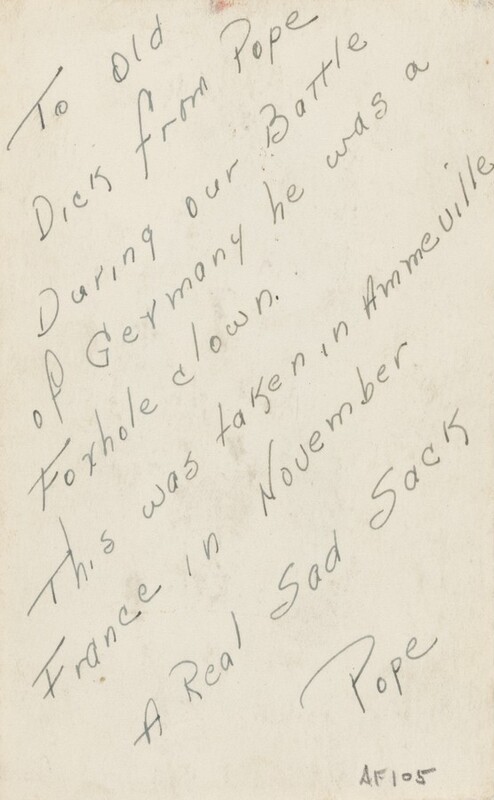 To Old
Dick from Pope
During our Battle
of Germany he was a
Foxhole clown.
This was taken in Ammeville
France in November
A Real Sad Sack
Pope
AF105